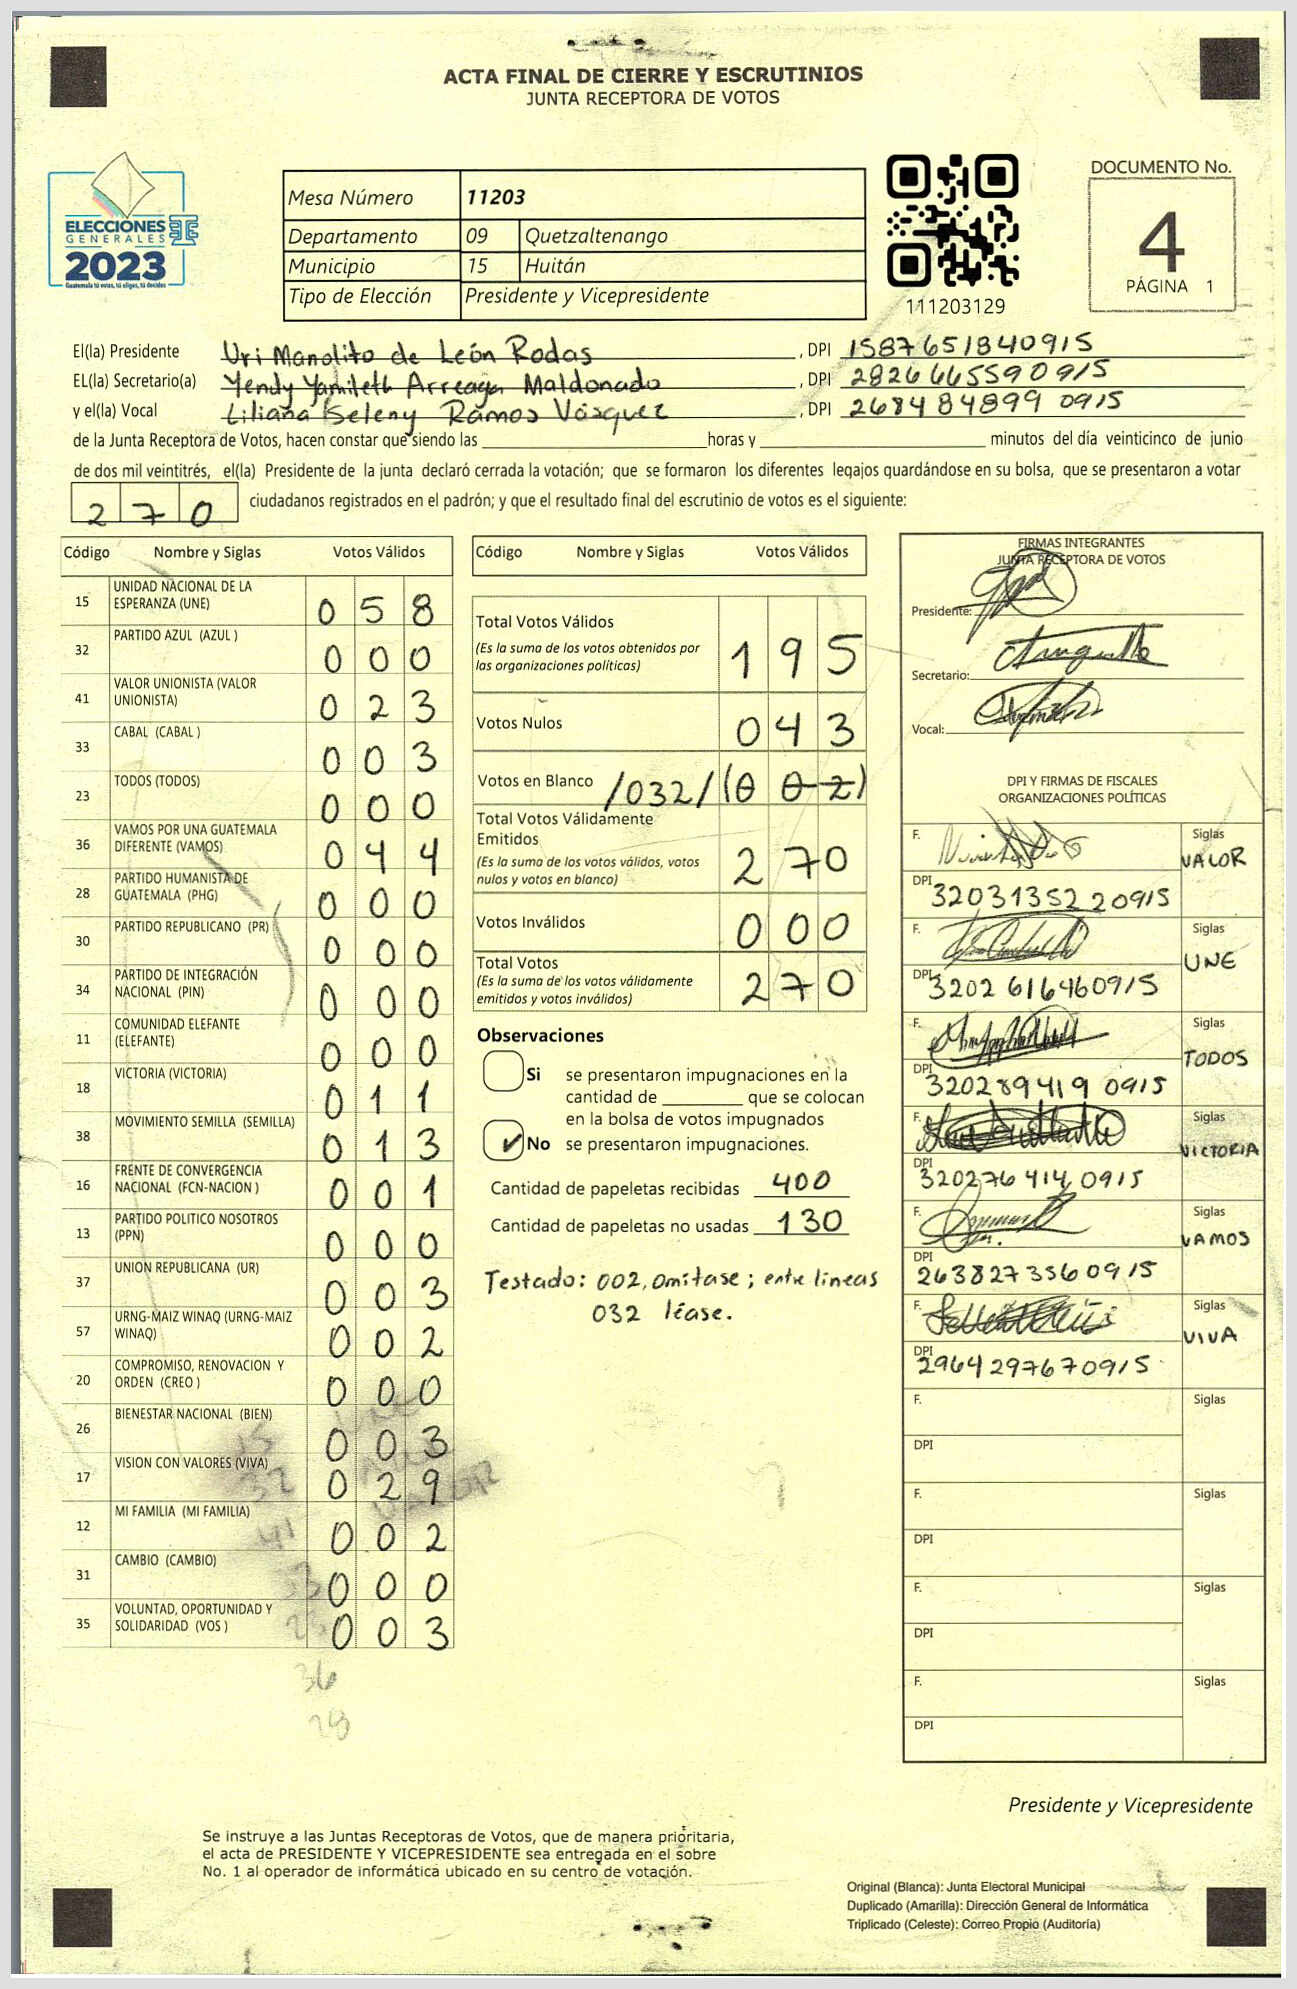 ACTA FINAL DE CIERRE Y ESCRUTINIOS
JUNTA RECEPTORA DE VOTOS
ELECCIONES
GENERALES
2023
Guatemala tú votas, tú eliges, tú decides
Mesa Número 11203
Departamento 09 Quetzaltenango
Municipio 15 Huitán
Tipo de Elección Presidente y Vicepresidente
111203129
DOCUMENTO No.
4
PÁGINA 1
El(la) Presidente Uri Manolito de León Rodas, DPI 1587651840915
EL(la) Secretario(a) Yendy Yamileth Arreaga Maldonado, DPI 2826665590915
y el(la) Vocal Liliana Seleny Ramos Vásquez, DPI 268484899 0915
de la Junta Receptora de Votos, hacen constar que siendo las horas y minutos del día veinticinco de junio
de dos mil veintitrés, el(la) Presidente de la junta declaró cerrada la votación; que se formaron los diferentes legajos guardándose en su bolsa, que se presentaron a votar
270 ciudadanos registrados en el padrón; y que el resultado final del escrutinio de votos es el siguiente:
Código Nombre y Siglas Votos Válidos
15 UNIDAD NACIONAL DE LA ESPERANZA (UNE) 058
32 PARTIDO AZUL (AZUL ) 000
41 VALOR UNIONISTA (VALOR UNIONISTA) 023
33 CABAL (CABAL ) 003
23 TODOS (TODOS) 000
36 VAMOS POR UNA GUATEMALA DIFERENTE (VAMOS) 044
28 PARTIDO HUMANISTA DE GUATEMALA (PHG) 000
30 PARTIDO REPUBLICANO (PR) 000
34 PARTIDO DE INTEGRACIÓN NACIONAL (PIN) 000
11 COMUNIDAD ELEFANTE (ELEFANTE) 000
18 VICTORIA (VICTORIA) 011
38 MOVIMIENTO SEMILLA (SEMILLA) 013
16 FRENTE DE CONVERGENCIA NACIONAL (FCN-NACION ) 001
13 PARTIDO POLITICO NOSOTROS (PPN) 000
37 UNION REPUBLICANA (UR) 003
57 URNG-MAIZ WINAQ (URNG-MAIZ WINAQ) 002
20 COMPROMISO, RENOVACION Y ORDEN (CREO ) 000
26 BIENESTAR NACIONAL (BIEN) 003
17 VISION CON VALORES (VIVA) 029
12 MI FAMILIA (MI FAMILIA) 002
31 CAMBIO (CAMBIO) 000
35 VOLUNTAD, OPORTUNIDAD Y SOLIDARIDAD (VOS ) 003
36
28
Código Nombre y Siglas Votos Válidos
Total Votos Válidos 195
(Es la suma de los votos obtenidos por
las organizaciones políticas)
Votos Nulos 043
Votos en Blanco /032/ (002)
Total Votos Válidamente
Emitidos 270
(Es la suma de los votos válidos, votos
nulos y votos en blanco)
Votos Inválidos 000
Total Votos 270
(Es la suma de los votos válidamente
emitidos y votos inválidos)
Observaciones
Si se presentaron impugnaciones en la
cantidad de que se colocan
en la bolsa de votos impugnados
✓ No se presentaron impugnaciones.
Cantidad de papeletas recibidas 400
Cantidad de papeletas no usadas 130
Testado: 002, omitase; entre lineas
032 léase.
FIRMAS INTEGRANTES
JUNTA RECEPTORA DE VOTOS
Presidente:
Secretario:
Vocal:
DPI Y FIRMAS DE FISCALES
ORGANIZACIONES POLÍTICAS
F. Siglas VALOR
DPI 3203135220915
F. Siglas UNE
DPI 3202616460915
F. Siglas TODOS
DPI 320289419 0915
F. Siglas VICTORIA
DPI 320276414 0915
F. Siglas VAMOS
DPI 2638273560915
F. Siglas VIVA
DPI 2964297670915
F. Siglas
DPI
F. Siglas
DPI
F. Siglas
DPI
F. Siglas
DPI
Presidente y Vicepresidente
Se instruye a las Juntas Receptoras de Votos, que de manera prioritaria,
el acta de PRESIDENTE Y VICEPRESIDENTE sea entregada en el sobre
No. 1 al operador de informática ubicado en su centro de votación.
Original (Blanca): Junta Electoral Municipal
Duplicado (Amarilla): Dirección General de Informática
Triplicado (Celeste): Correo Propio (Auditoría)